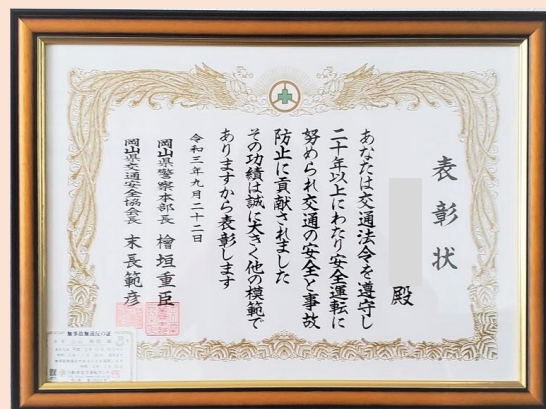 表彰状
殿
あなたは交通法令を遵守し
二十年以上にわたり安全運転に
努められ交通の安全と事故
防止に貢献されました
その功績は誠に大きく他の模範で
ありますから表彰します
令和三年九月二十二日
岡山県警察本部長 檜垣重臣
岡山県交通安全協会長 末長範彦
無事故無違反の証